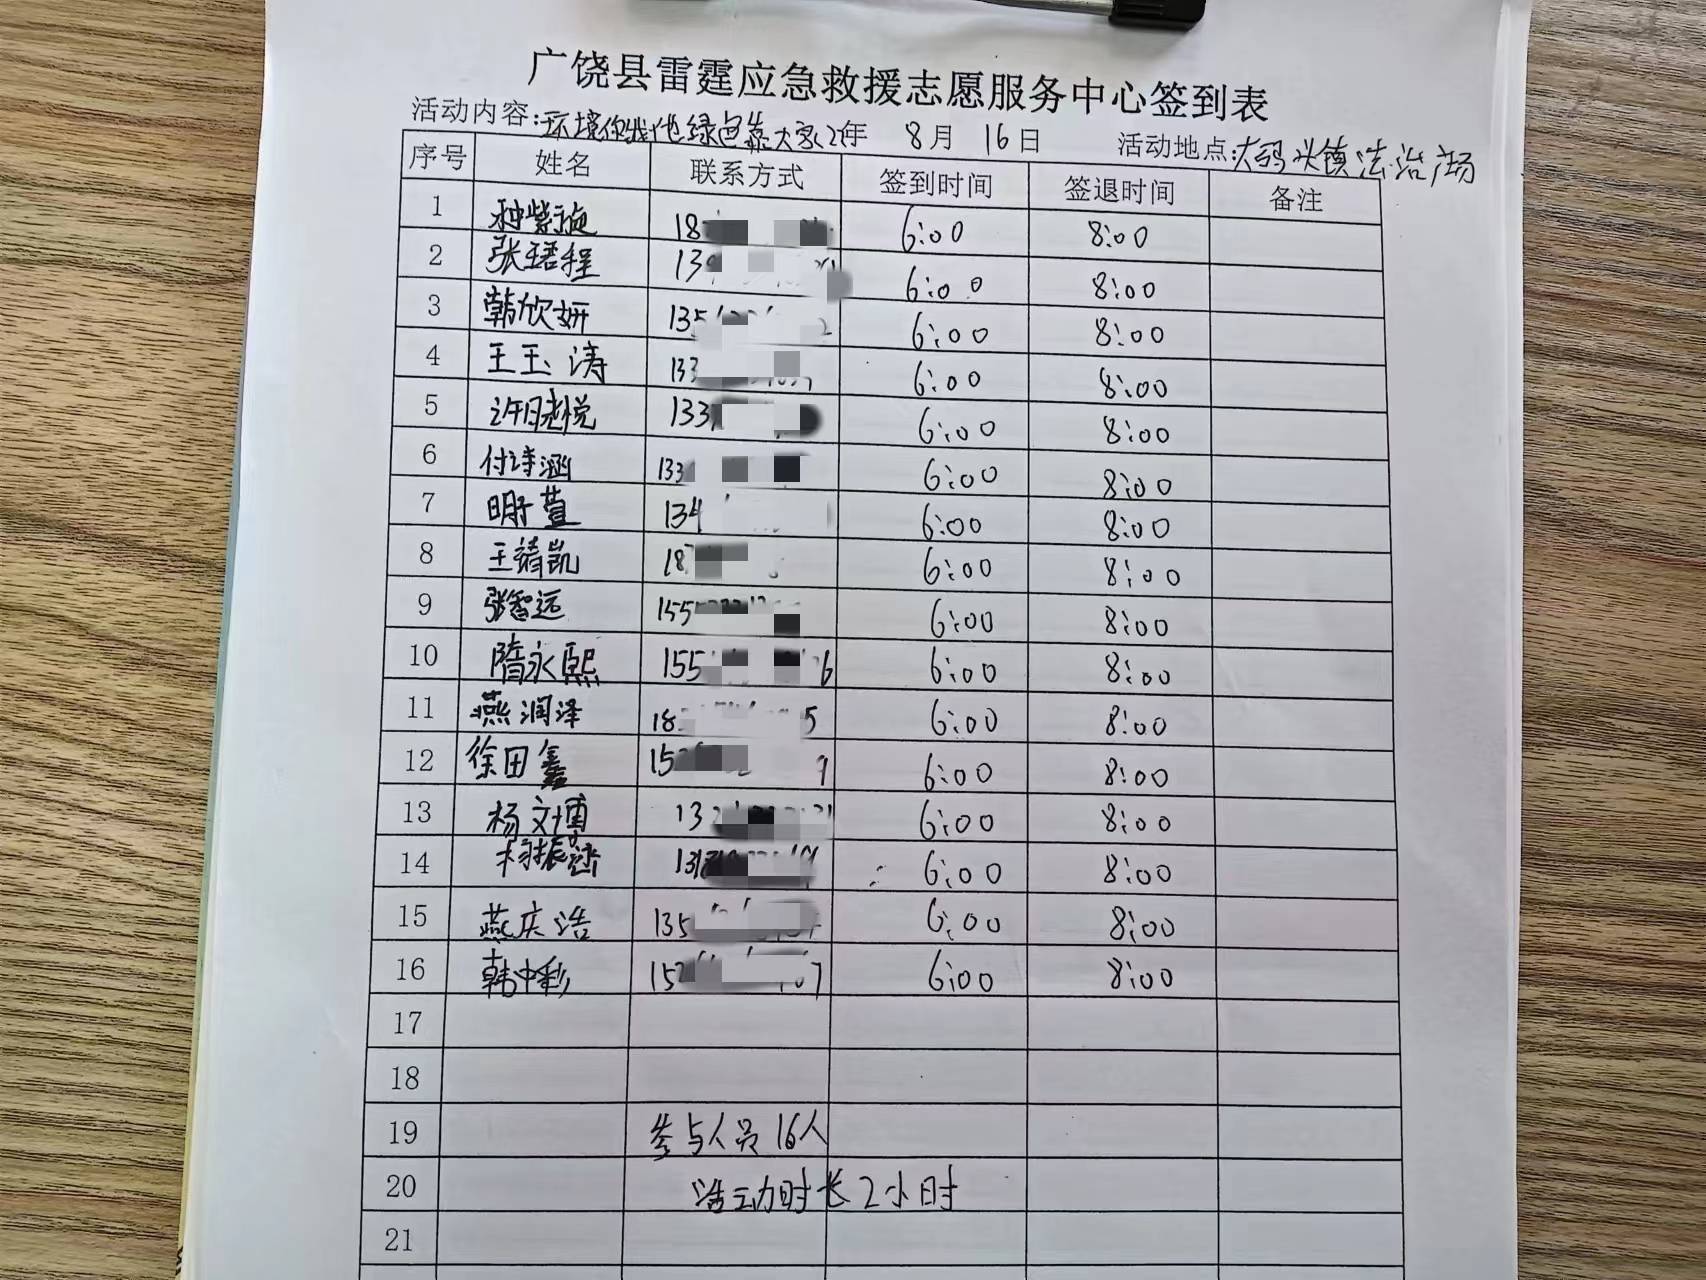 广饶县雷霆应急救援志愿服务中心签到表
活动内容:环境你我他绿色靠大家 年 8月 16日 活动地点:大码头镇法治广场
序号 姓名 联系方式 签到时间 签退时间 备注
1 种紫旋 18 6:00 8:00
2 张珺程 139 6:00 8:00
3 韩欣妍 135 6:00 8:00
4 王玉涛 133 6:00 8:00
5 许晓悦 133 6:00 8:00
6 付诗涵 133 6:00 8:00
7 明子萱 134 6:00 8:00
8 王靖凯 18 6:00 8:00
9 张智远 155 6:00 8:00
10 隋永熙 155 6 6:00 8:00
11 燕润泽 18 5 6:00 8:00
12 徐田鑫 15 9 6:00 8:00
13 杨文博 13 6:00 8:00
14 杨振 13 6:00 8:00
15 燕庆浩 135 6:00 8:00
16 韩中彩 152 7 6:00 8:00
17
18
19 参与人员16人
20 活动时长2小时
21